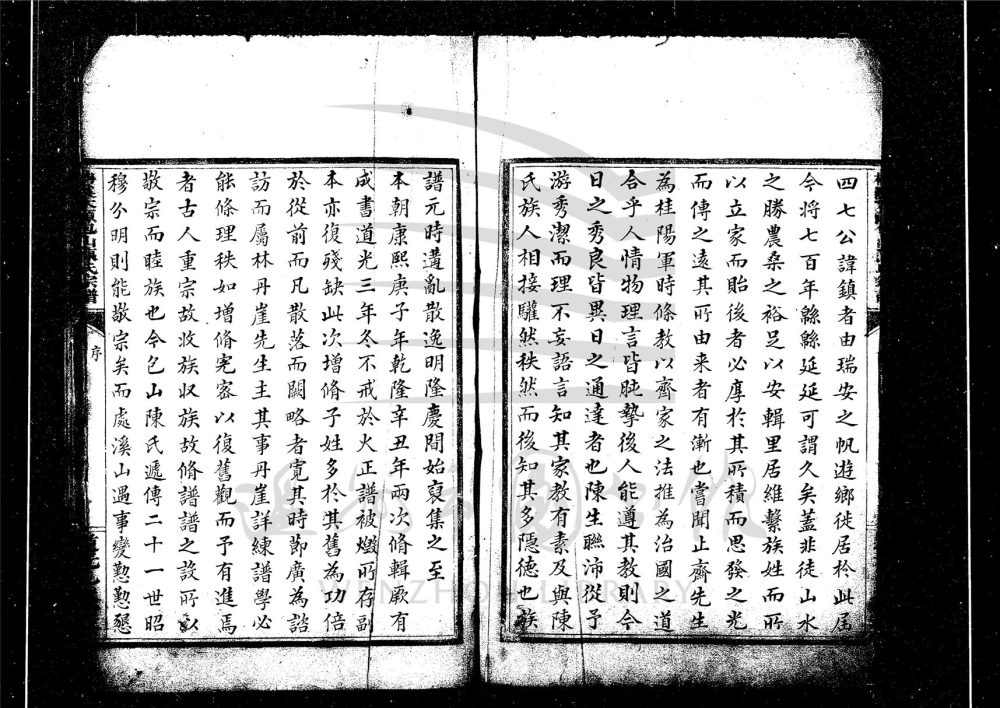 四七公諱鎮者由瑞安之帆遊鄉徙居於此届
今將七百年緜緜延延可謂久矣蓋非徒山水
之勝農桑之裕足以安輯里居維繫族姓而所
以立家而貽後者必厚於其所積而思發之光
而傳之遠其所由来者有漸也嘗聞止齋先生
為桂陽軍時條教以齊家之法推為治國之道
合乎人情物理言皆肫摯後人能遵其教則今
日之秀良皆異日之通達者也陳生聯沛從予
游秀潔而理不妄語言知其家教有素及與陳
氏族人相接驩然秩然而後知其多隱德也族
譜元時遘亂散逸明隆慶間始裒集之至
本朝康熙庚子年乾隆辛丑年兩次脩輯厥有
成書道光三年冬不戒於火正譜被燬所存副
本亦復殘缺此次增脩子姓多於其舊為功倍
於從前而凡散落而闕略者寬其時節廣為諮
訪而屬林丹崖先生主其事丹崖詳練譜學必
能條理秩如增脩完密以復舊觀而予有進焉
者古人重宗故收族収族故脩譜譜之設所以
敬宗而睦族也今包山陳氏遞傳二十一世昭
穆分明則能敬宗矣而處溪山遇事變懃懃懇
山陳氏宗譜
序
WENZHOU LIBRARY